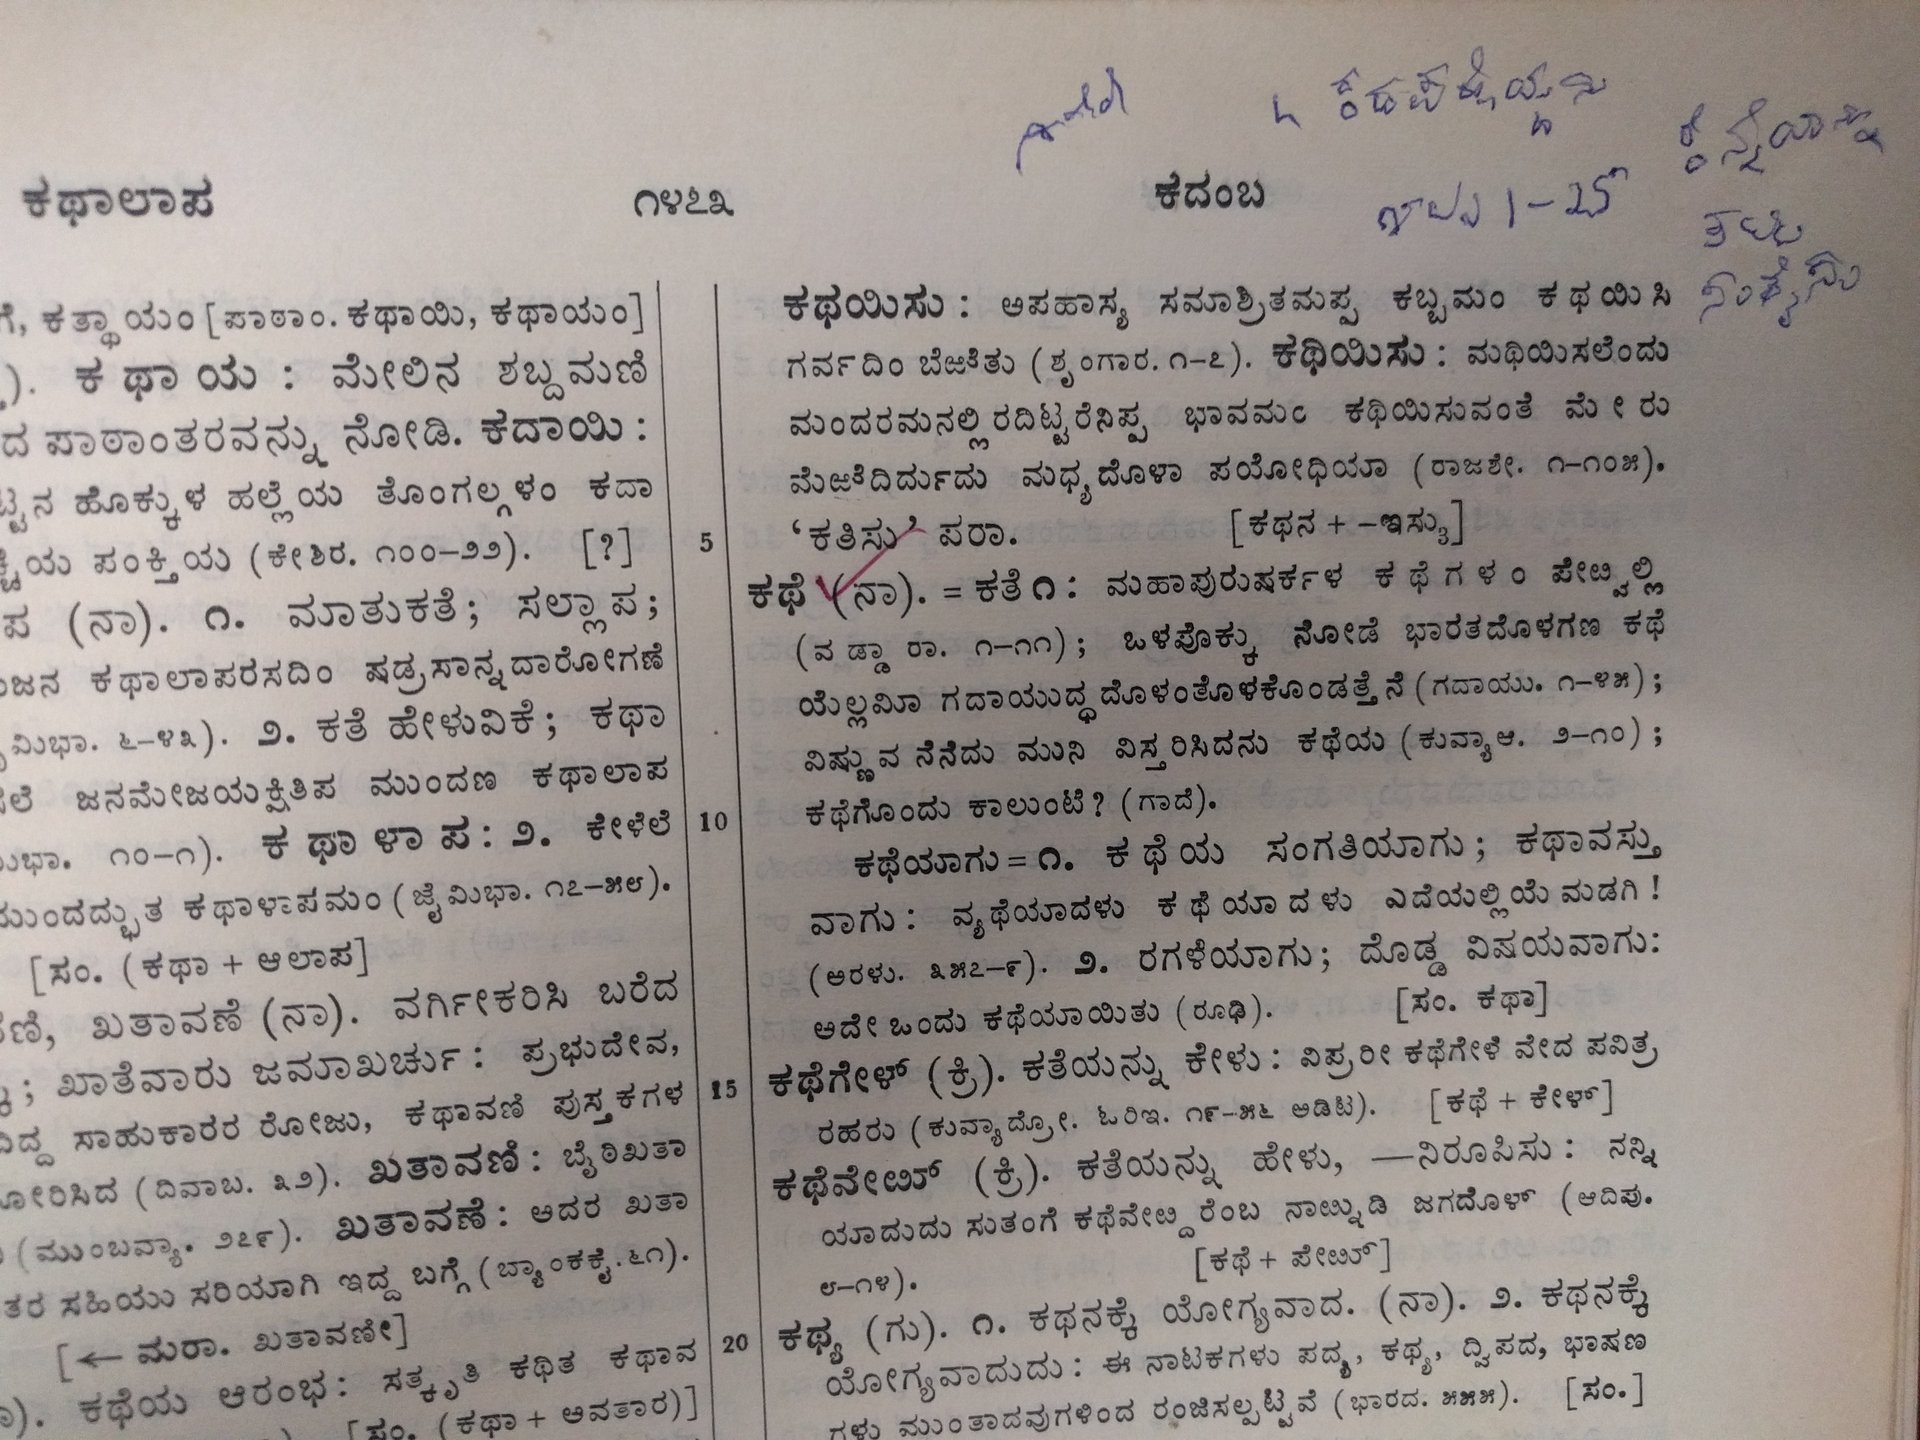 ಕಥಾಲಾಪ
೧೪೭೩
ಕದಂಬ
1-25
ಗೆ, ಕತ್ಥಾಯಂ [ಪಾಠಾಂ. ಕಥಾಯಿ, ಕಥಾಯಂ]
). ಕಥಾಯ : ಮೇಲಿನ ಶಬ್ದಮಣಿ
ದ ಪಾಠಾಂತರವನ್ನು ನೋಡಿ. ಕದಾಯಿ :
ಟ್ಟನ ಹೊಕ್ಕುಳ ಹಲ್ಲೆಯ ತೊಂಗಲ್ಗಳಂ ಕದಾ
ಯ ಪಂಕ್ತಿಯ (ಕೇಶಿರ. ೧೦೦-೨೨). [?]
ಪ (ನಾ). ೧. ಮಾತುಕತೆ; ಸಲ್ಲಾಪ;
ಜನ ಕಥಾಲಾಪರಸದಿಂ ಷಡ್ರಸಾನ್ನದಾರೋಗಣೆ
ಮಿಭಾ. ೬-೪೩). ೨. ಕತೆ ಹೇಳುವಿಕೆ; ಕಥಾ
ಲೆ ಜನಮೇಜಯಕ್ಷಿತಿಪ ಮುಂದಣ ಕಥಾಲಾಪ
ಭಾ. ೧೦-೧). ಕಥಾಳಾಪ : ೨. ಕೇಳೆಲೆ
ಮುಂದದ್ಭುತ ಕಥಾಳಾಪಮಂ (ಜೈಮಿಭಾ. ೧೭-೫೮).
[ಸಂ. (ಕಥಾ + ಆಲಾಪ]
ಣಿ, ಖತಾವಣೆ (ನಾ). ವರ್ಗೀಕರಿಸಿ ಬರೆದ
; ಖಾತೆವಾರು ಜಮಾಖರ್ಚು : ಪ್ರಭುದೇವ,
ದ್ದ ಸಾಹುಕಾರರ ರೋಜು, ಕಥಾವಣಿ ಪುಸ್ತಕಗಳ
ೋರಿಸಿದ (ದಿವಾಬ. ೩೨). ಖತಾವಣಿ : ಬೈಠಿಖತಾ
(ಮುಂಬವ್ಯಾ. ೨೭೯). ಖತಾವಣೆ : ಅದರ ಖತಾ
ತರ ಸಹಿಯು ಸರಿಯಾಗಿ ಇದ್ದ ಬಗ್ಗೆ (ಬ್ಯಾಂಕಕೈ. ೬೧).
[← ಮರಾ. ಖತಾವಣೀ]
). ಕಥೆಯ ಆರಂಭ : ಸತ್ಕೃತಿ ಕಥಿತ ಕಥಾವ
[ಸಂ. (ಕಥಾ + ಅವತಾರ)]
5
10
15
20
ಕಥಯಿಸು : ಅಪಹಾಸ್ಯ ಸಮಾಶ್ರಿತಮಪ್ಪ ಕಬ್ಬಮಂ ಕಥಯಿಸಿ
ಗರ್ವದಿಂ ಬೆಱಕೆತು (ಶೃಂಗಾರ. ೧-೭). ಕಥಿಯಿಸು : ಮಥಿಯಿಸಲೆಂದು
ಮಂದರಮನಲ್ಲಿರದಿಟ್ಟರೆನಿಪ್ಪ ಭಾವಮಂ ಕಥಿಯಿಸುವಂತೆ ಮೇರು
ಮೆಱೆದಿರ್ದುದು ಮಧ್ಯದೊಳಾ ಪಯೋಧಿಯಾ (ರಾಜಶೇ. ೧-೧೦೫).
‘ಕತಿಸು’ ಪರಾ. [ಕಥನ + -ಇಸು]
ಕಥೆ (ನಾ). = ಕತೆ ೧ : ಮಹಾಪುರುಷರ್ಕಳ ಕಥೆಗಳಂ ಪೇೞ್ವಲ್ಲಿ
(ವಡ್ಡಾರಾ. ೧-೧೧); ಒಳಪೊಕ್ಕು ನೋಡೆ ಭಾರತದೊಳಗಣ ಕಥೆ
ಯೆಲ್ಲಮೀ ಗದಾಯುದ್ಧದೊಳಂತೊಳಕೊಂಡತ್ತೆನೆ (ಗದಾಯು. ೧-೪೫);
ವಿಷ್ಣುವ ನೆನೆದು ಮುನಿ ವಿಸ್ತರಿಸಿದನು ಕಥೆಯ (ಕುವ್ಯಾಆ. ೨-೧೦);
ಕಥೆಗೊಂದು ಕಾಲುಂಟೆ? (ಗಾದೆ).
ಕಥೆಯಾಗು = ೧. ಕಥೆಯ ಸಂಗತಿಯಾಗು; ಕಥಾವಸ್ತು
ವಾಗು : ವ್ಯಥೆಯಾದಳು ಕಥೆಯಾದಳು ಎದೆಯಲ್ಲಿಯೆ ಮಡಗಿ!
(ಅರಳು. ೩೫೭-೯). ೨. ರಗಳೆಯಾಗು; ದೊಡ್ಡ ವಿಷಯವಾಗು:
ಅದೇ ಒಂದು ಕಥೆಯಾಯಿತು (ರೂಢಿ). [ಸಂ. ಕಥಾ]
ಕಥೆಗೇಳ್ (ಕ್ರಿ). ಕತೆಯನ್ನು ಕೇಳು : ವಿಪ್ರರೀ ಕಥೆಗೇಳೆ ವೇದ ಪವಿತ್ರ
ರಹರು (ಕುವ್ಯಾದ್ರೋ. ಓರಿಇ. ೧೯-೫೬ ಅಡಿಟಿ). [ಕಥೆ + ಕೇಳ್]
ಕಥೆವೇೞ್ (ಕ್ರಿ). ಕತೆಯನ್ನು ಹೇಳು, —ನಿರೂಪಿಸು : ನನ್ನಿ
ಯಾದುದು ಸುತಂಗೆ ಕಥೆವೇೞ್ದರೆಂಬ ನಾೞ್ನುಡಿ ಜಗದೊಳ್ (ಆದಿಪು.
೮-೧೪). [ಕಥೆ + ಪೇೞ್]
ಕಥ್ಯ (ಗು). ೧. ಕಥನಕ್ಕೆ ಯೋಗ್ಯವಾದ. (ನಾ). ೨. ಕಥನಕ್ಕೆ
ಯೋಗ್ಯವಾದುದು : ಈ ನಾಟಕಗಳು ಪದ್ಯ, ಕಥ್ಯ, ದ್ವಿಪದ, ಭಾಷಣ
ಗಳು ಮುಂತಾದವುಗಳಿಂದ ರಂಜಿಸಲ್ಪಟ್ಟಿವೆ (ಭಾರದ. ೫೫೫). [ಸಂ.]